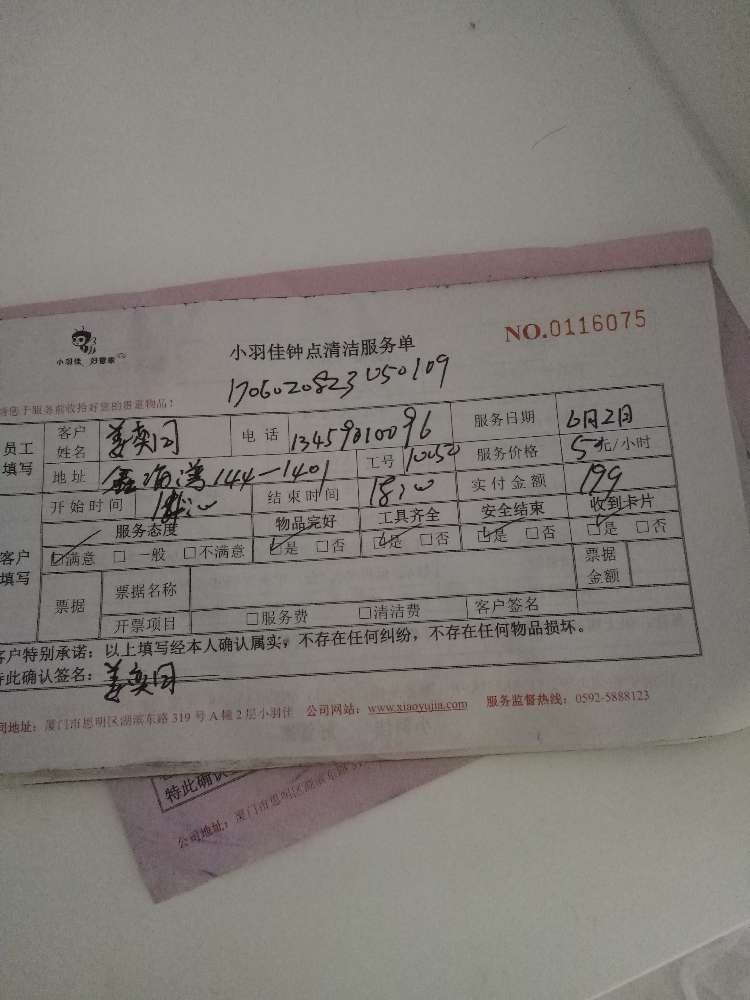 小羽佳 好管家
小羽佳钟点清洁服务单
NO.0116075
17060208231050109
请您于服务前收拾好您的贵重物品!
员工填写 客户姓名 电话 13459010096 服务日期 6月2日
地址 144-1401 工号 10050 服务价格 5 元/小时
开始时间 结束时间 18:00 实付金额 199
客户填写 服务态度 物品完好 工具齐全 安全结束 收到卡片
☑满意 □一般 □不满意 ☑是 □否 ☑是 □否 ☑是 □否 ☑是 □否
票据 票据名称 票据金额
开票项目 □服务费 □清洁费 客户签名
客户特别承诺：以上填写经本人确认属实，不存在任何纠纷，不存在任何物品损坏。
特此确认签名：
公司地址：厦门市思明区湖滨东路 319 号 A 幢 2 层小羽佳 公司网站：www.xiaoyujia.com 服务监督热线：0592-5888123
特此确认
公司地址：厦门市思明区湖滨东路 3